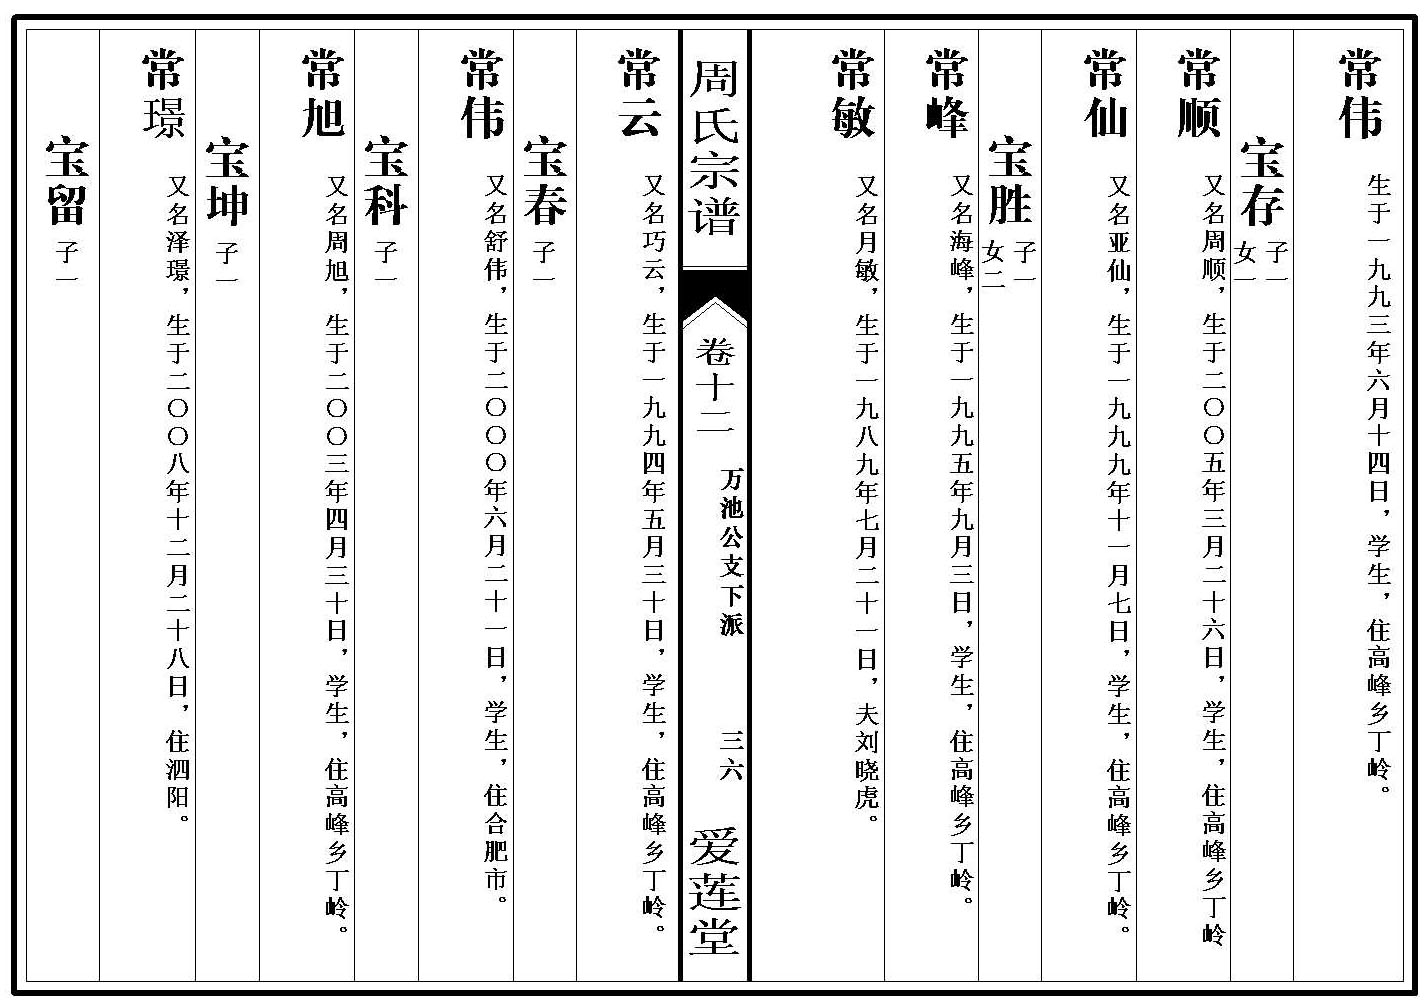 常伟 生于一九九三年六月十四日，学生，住高峰乡丁岭。
宝存 子一 女一
常顺 又名周顺，生于二〇〇五年三月二十六日，学生，住高峰乡丁岭
常仙 又名亚仙，生于一九九九年十一月七日，学生，住高峰乡丁岭。
宝胜 子一 女二
常峰 又名海峰，生于一九九五年九月三日，学生，住高峰乡丁岭。
常敏 又名月敏，生于一九八九年七月二十一日，夫刘晓虎。
周氏宗谱 卷十二 万池公支下派 三六 爱莲堂
常云 又名巧云，生于一九九四年五月三十日，学生，住高峰乡丁岭。
宝春 子一
常伟 又名舒伟，生于二〇〇〇年六月二十一日，学生，住合肥市。
宝科 子一
常旭 又名周旭，生于二〇〇三年四月三十日，学生，住高峰乡丁岭。
宝坤 子一
常璟 又名泽璟，生于二〇〇八年十二月二十八日，住泗阳。
宝留 子一